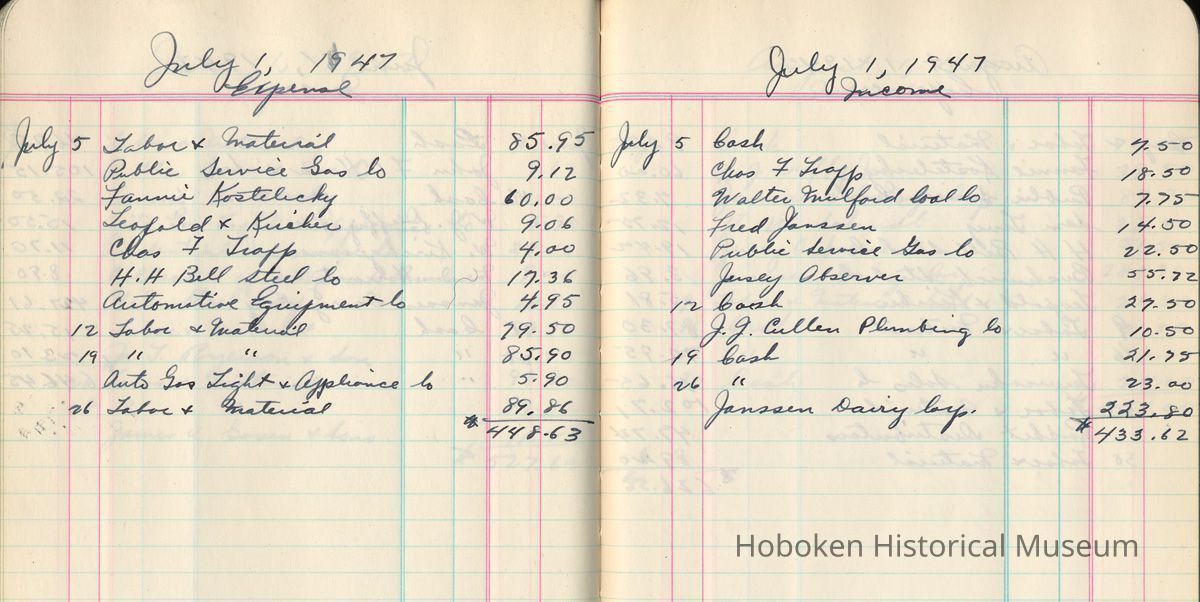 July 1, 1947
Expense
July 5 Labor & Material 85.95
Public Service Gas Co 9.12
Fannie Kostelecky 60.00
Leopold & Kircher 9.06
Chas F Trapp 4.00
H.H Bell Steel Co 17.36
Automotive Equipment Co 4.95
12 Labor & Material 79.50
19 " " 85.90
Auto Gas Light & Appliance Co 5.90
26 Labor & Material 89.86
* 448.63
July 1, 1947
Income
July 5 Cash 7.50
Chas F Trapp 18.50
Walter Mulford Coal Co 7.75
Fred Janssen 14.50
Public Service Gas Co 22.50
Jersey Observer 55.72
12 Cash 27.50
J.J. Cullen Plumbing Co 10.50
19 Cash 21.75
26 " 23.00
Janssen Dairy Corp. 223.80
* 433.62
Hoboken Historical Museum